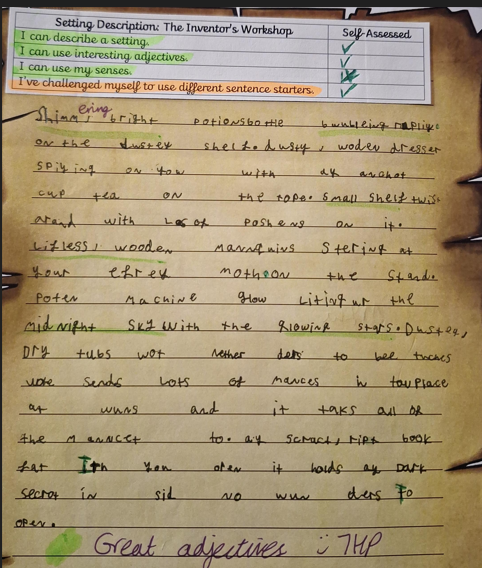 Setting Description: The Inventor's Workshop
Self-Assessed
I can describe a setting.
I can use interesting adjectives.
I can use my senses.
I've challenged myself to use different sentence starters.
Shimmering bright potionsbottle
on the dustey shelf. dusty, woden dresser
on you with ay
cup tea on the tope. small shelf
with Los of on it.
Lifless, wooden Mannquins Stering at
your efrey mothoon the Stand.
Poten Machine glow Liting ur the
midnight sky with the glowing stars. Dustea,
Dry tubs wot nether ders to bee
sends Lots of in
at wuns and it taks all of
the to. ay scract, ript book
fat Ith you open it holds ay Dark
secrat in sid no wun ders To
open.
Great adjectives THP